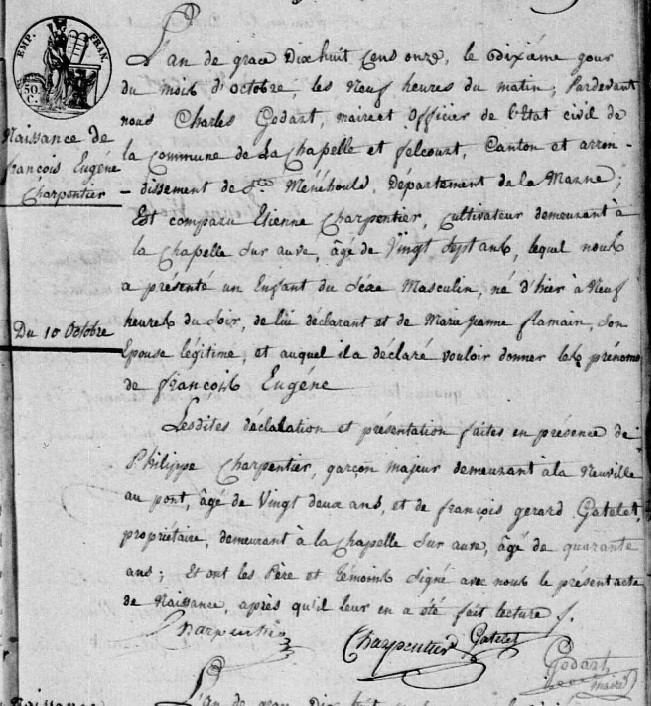 EMP. FRAN.
50 C.
Naissance de
françois Eugéne
Charpentier
Du 10 Octobre
L'an de grace Dix huit Cens onze, le Dixiéme jour
du mois d'octobre, les Neuf heures du matin; Pardevant
nous Charles Godart, maire et Officier de l'Etat civil de
la Commune de La Chapelle et felcourt, Canton et arron-
-dissement de Ste Ménéhould, Département de la Marne;
Est comparu Etienne Charpentier, cultivateur demeurant à
la Chapelle sur auve, âgé de Vingt Sept ans, lequel nous
a présenté un Enfant du Séxe Masculin, né d'hier à Neuf
heures du Soir, de lui déclarant et de Marie Jeanne flamain, Son
Epouse légitime, et auquel il a déclaré vouloir donner les prénoms
de françois Eugéne
Lesdites déclalation et présentation faites en présence de
Philippe Charpentier, garçon majeur demeurant à la Neuville
au pont, âgé de Vingt deux ans, et de françois gerard Gatelet,
propriétaire, demeurant à la Chapelle sur auve, âgé de quarante
ans; Et ont les Père et témoins signé avec nous le présent acte
de Naissance, après qu'il leur en a été fait lecture.
Charpentier
Charpentier
Gatelet
Godart
maire
Naissance
L'an de grace Dix huit